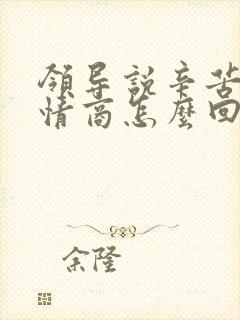 領导説辛苦
情商怎麽回
余隆